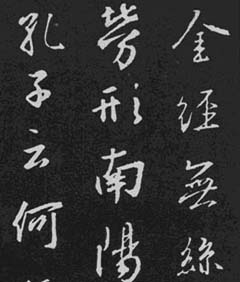 金經無絲
勞形南陽
孔子云何